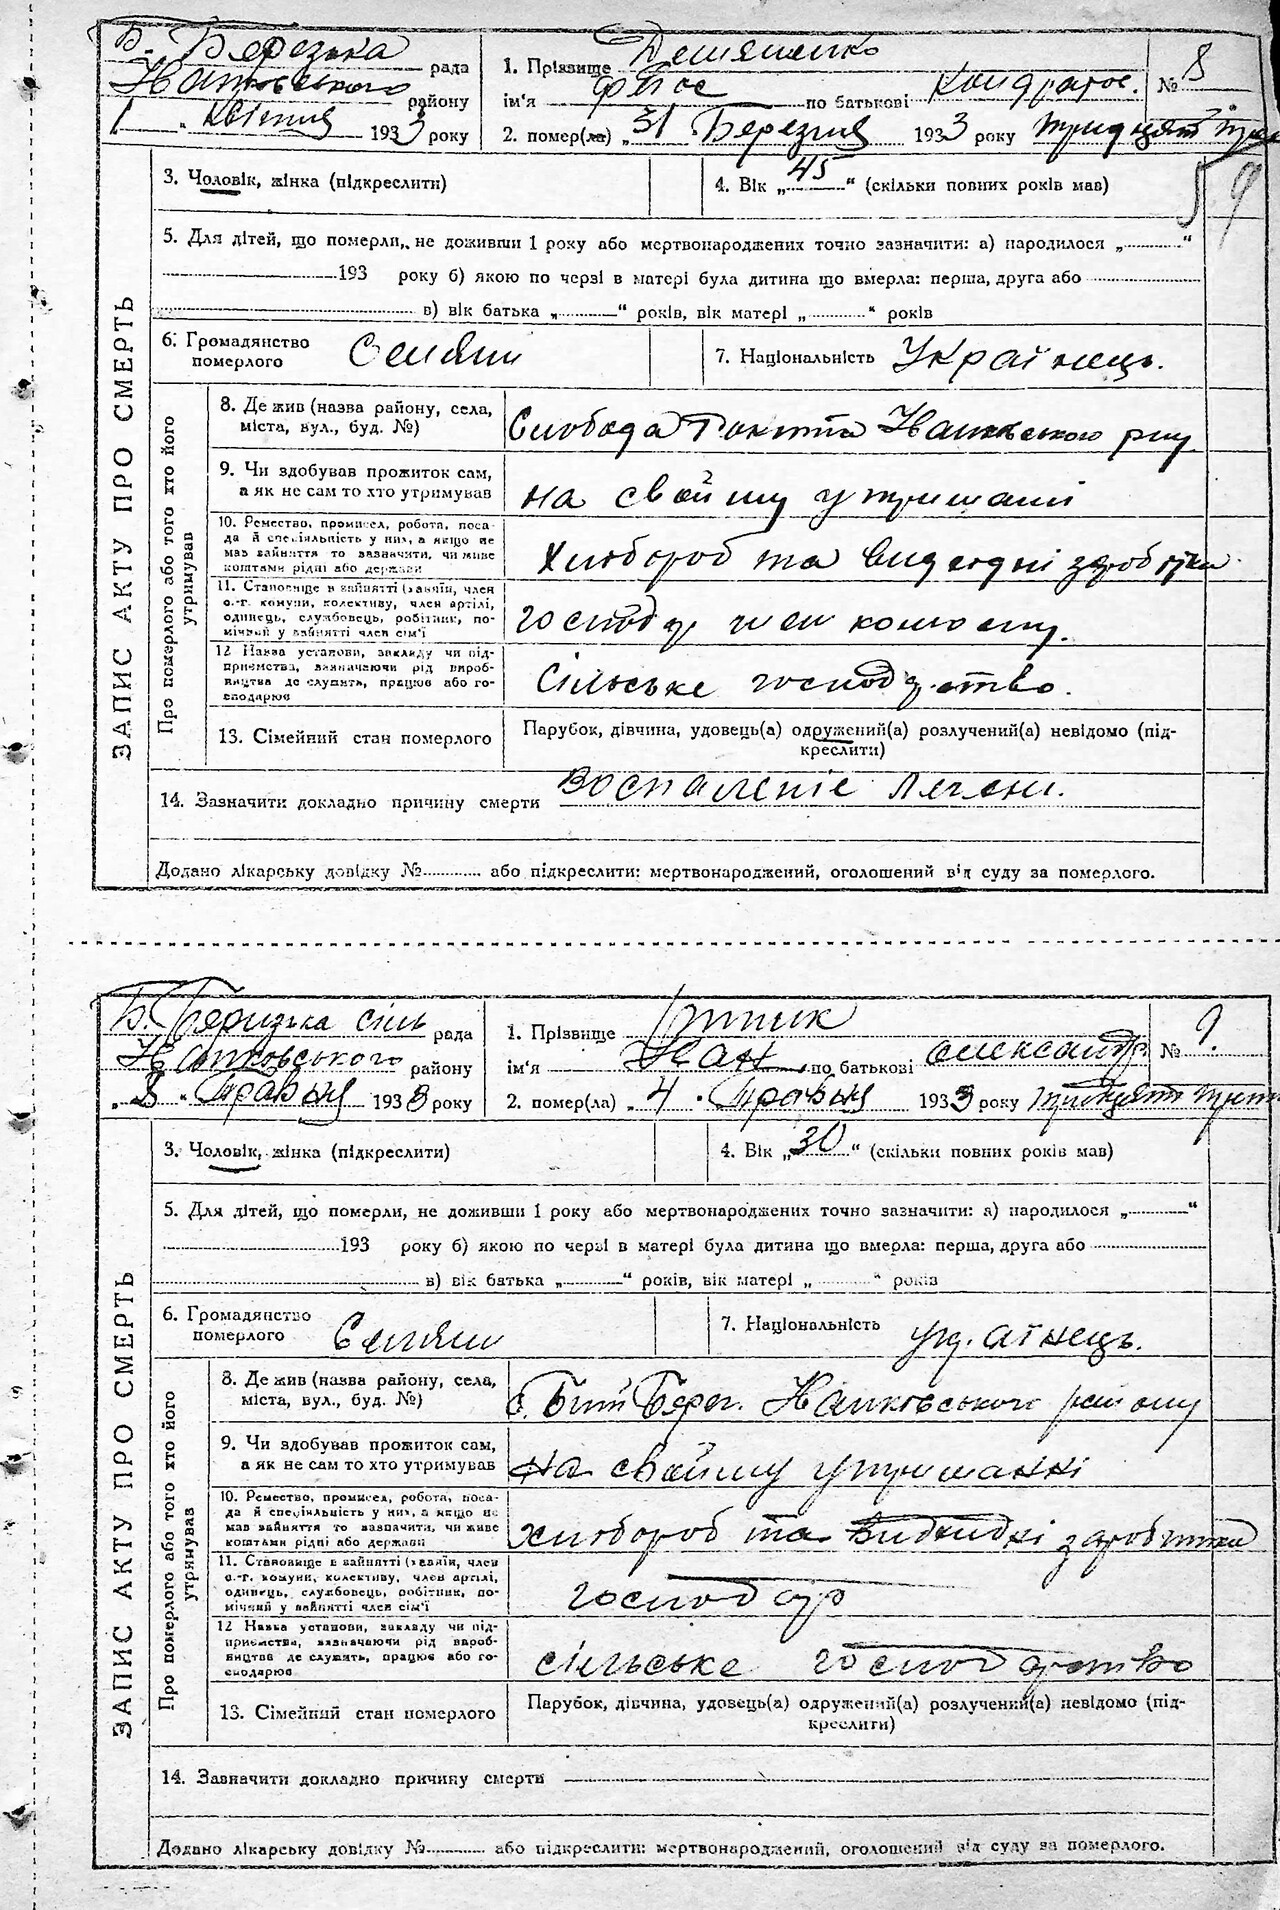 Б. Березька рада
району
1 " квітня 1933 року
1. Прізвище Демяненко
ім'я по батькові Кондратов. № 8
2. помер(ла) „ 31 " Березня 1933 року тридцять
3. Чоловік, жінка (підкреслити)
4. Вік „ 45 “ (скільки повних років мав)
59
5. Для дітей, що померли, не доживши 1 року або мертвонароджених точно зазначити: а) народилося „ “
193 року б) якою по черзі в матері була дитина що вмерла: перша, друга або
в) вік батька „ “ років, вік матері „ “ років
6. Громадянство померлого Селянин
7. Національність Українець.
ЗАПИС АКТУ ПРО СМЕРТЬ
Про померлого або того хто його утримував
8. Де жив (назва району, села,
міста, вул., буд. №)
Слобода Ракита
9. Чи здобував прожиток сам,
а як не сам то хто утримував
на свойму утриманні
10. Ремество, промисел, робота, поса-
да й спеціяльність у них, а якщо не
мав зайняття то зазначити, чи живе
коштами рідні або держави
Хлібороб та заробітки
11. Становище в зайнятті (хазяїн, член
с.-г. комуни, колективу, член артілі,
одинець, службовець, робітник, по-
мічний у зайнятті член сім'ї
господ член
12 Назва установи, закладу чи під-
приємства, зазначаючи рід вироб-
ництва де служить, працює або го-
сподарює
сільське господарство.
13. Сімейний стан померлого
Парубок, дівчина, удовець(а) одружений(а) розлучений(а) невідомо (під-
креслити)
14. Зазначити докладно причину смерти воспаленіе
Додано лікарську довідку № або підкреслити: мертвонароджений, оголошений від суду за померлого.
Б. Березька сіль рада
району
" Травня 1933 року
1. Прізвище
ім'я Іван по батькові Олександр. № 9.
2. помер(ла) „ 4 " Травня 1933 року тридцять
3. Чоловік, жінка (підкреслити)
4. Вік „ 30 “ (скільки повних років мав)
5. Для дітей, що померли, не доживши 1 року або мертвонароджених точно зазначити: а) народилося „ “
193 року б) якою по черзі в матері була дитина що вмерла: перша, друга або
в) вік батька „ “ років, вік матері „ “ років
6. Громадянство померлого Селянин
7. Національність
ЗАПИС АКТУ ПРО СМЕРТЬ
Про померлого або того хто його утримував
8. Де жив (назва району, села,
міста, вул., буд. №)
с. Берег. району
9. Чи здобував прожиток сам,
а як не сам то хто утримував
на свойму утриманні
10. Ремество, промисел, робота, поса-
да й спеціяльність у них, а якщо не
мав зайняття то зазначити, чи живе
коштами рідні або держави
хлібороб та заробітки
11. Становище в зайнятті (хазяїн, член
с.-г. комуни, колективу, член артілі,
одинець, службовець, робітник, по-
мічний у зайнятті член сім'ї
господар
12 Назва установи, закладу чи під-
приємства, зазначаючи рід вироб-
ництва де служить, працює або го-
сподарює
сільське господарство
13. Сімейний стан померлого
Парубок, дівчина, удовець(а) одружений(а) розлучений(а) невідомо (під-
креслити)
14. Зазначити докладно причину смерти
Додано лікарську довідку № або підкреслити: мертвонароджений, оголошений від суду за померлого.